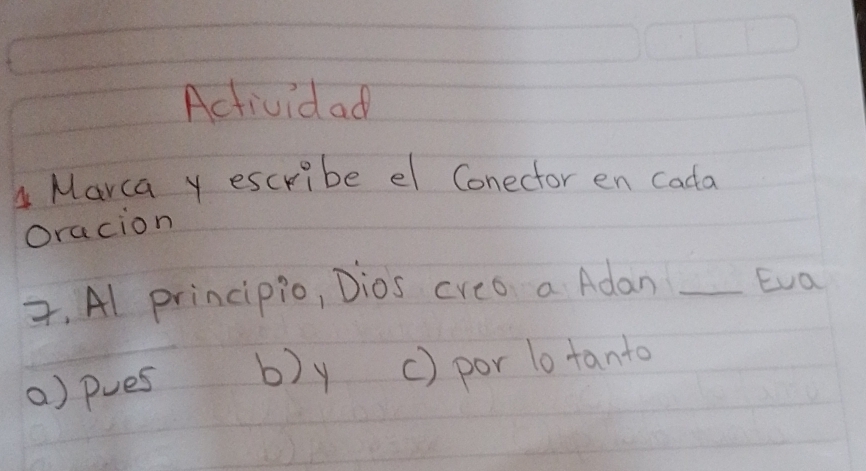 Actividad
1 Marca y escribe el Conector en cada
Oracion
7. Al principio, Dios creo a Adan ___ Eva
a) pues b) y c) por lo tanto